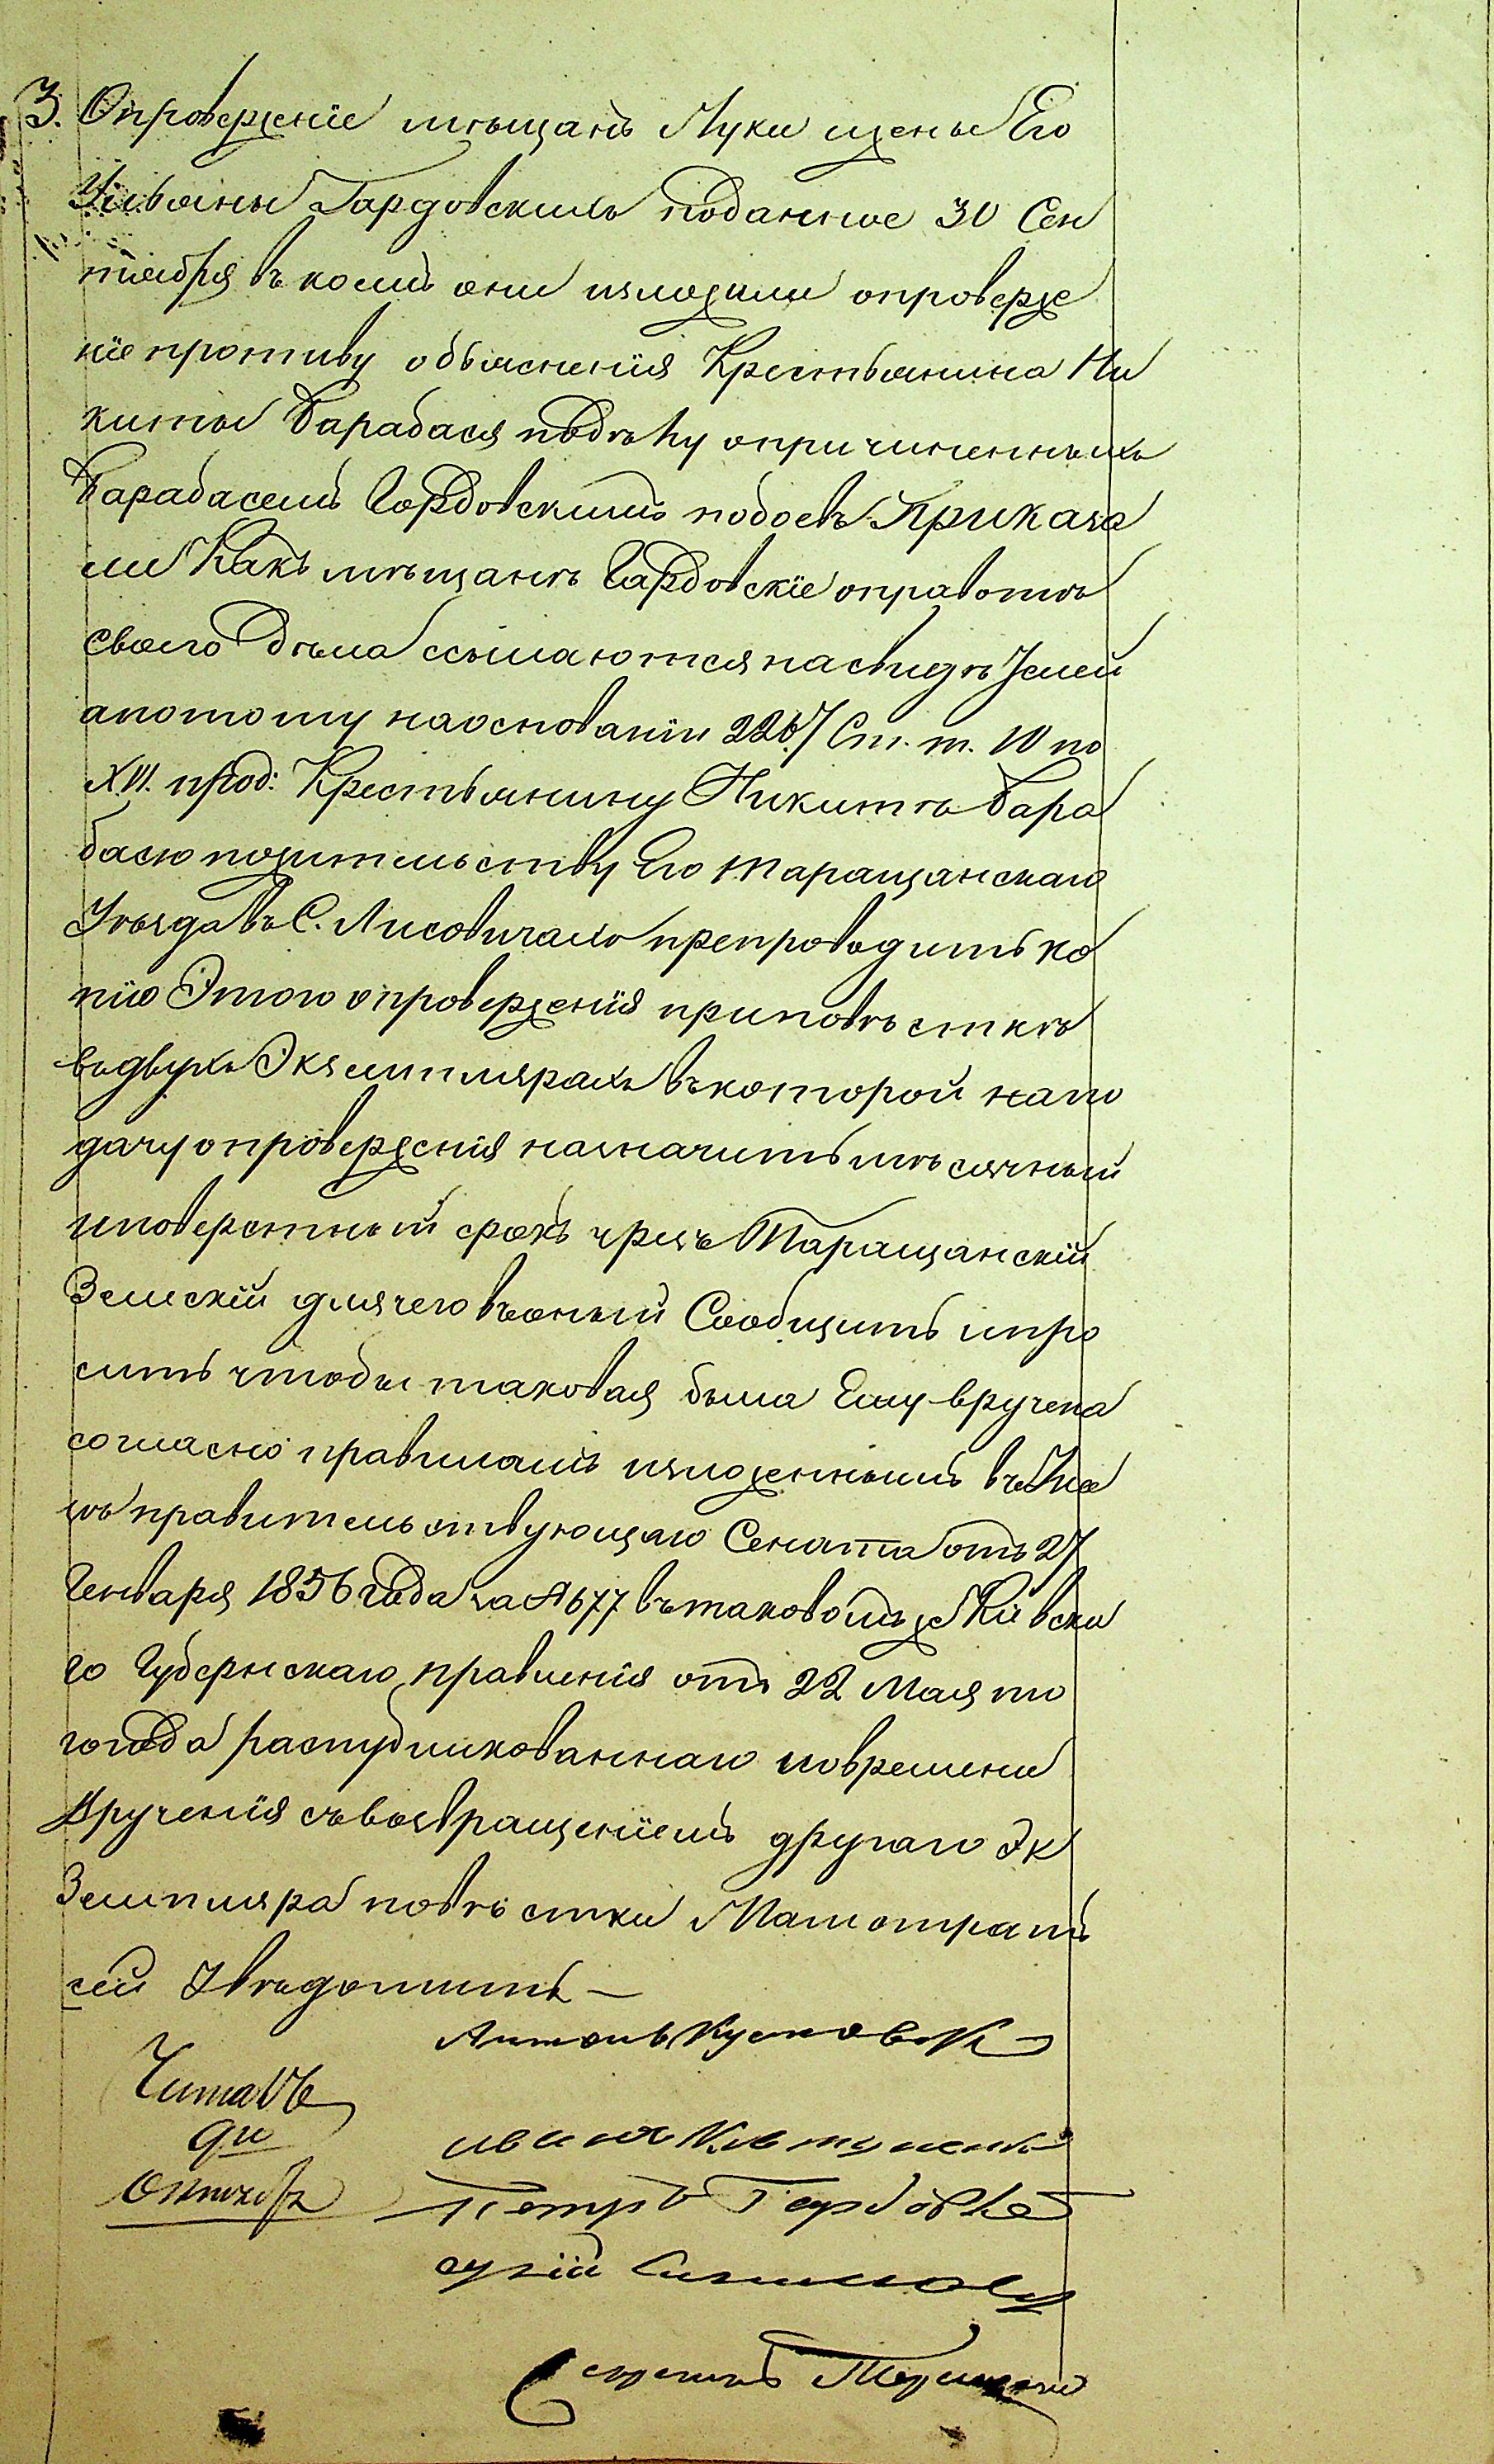 3. Опровержение мѣщанъ Луки и жены Его
Ульяны Гардовскихъ поданное 30 Сен
тября въ коемъ они изложили опроверже
ніе противу объясненія Крестьянина Ни
киты Барабася по дѣлу о причиненныхъ
Барабасемъ Гордовскимъ побоевъ Приказа
ли Какъ мѣщанѣ Гардовскіе о правотѣ
своего дѣла ссылаются на свидѣтелей
а потому на основаніи 2267 Ст. т. 10 по
XVI. прод: Крестьянину Никитѣ Бара
басю по жительству Его Таращанскаго
Уѣзда въ С. Лисовичахъ препроводить ко
пію Этого опроверженія при повѣсткѣ
въ двухъ Экземплярахъ въ которой на по
дачу опроверженія назначить мѣсячный
и поверстный срокъ чрезъ Таращанскій
Земскій для чего въ оный Сообщить и про
сить чтобы таковая была Ему вручена
согласно правиламъ изложеннымъ въ Ука
зѣ правительствующаго Сената отъ 27
Генваря 1856 года за № 677 въ таковомъ же Кіевска
го Губернскаго правленія отъ 22 Мая то
го года распубликованнаго и о времени
вручения съ возвращеніемъ другаго Эк
Земпляра повѣстки Магистратъ
сей Увѣдомить —
Антонъ
Читалъ
Иванъ
Октября
Петръ Гербовс